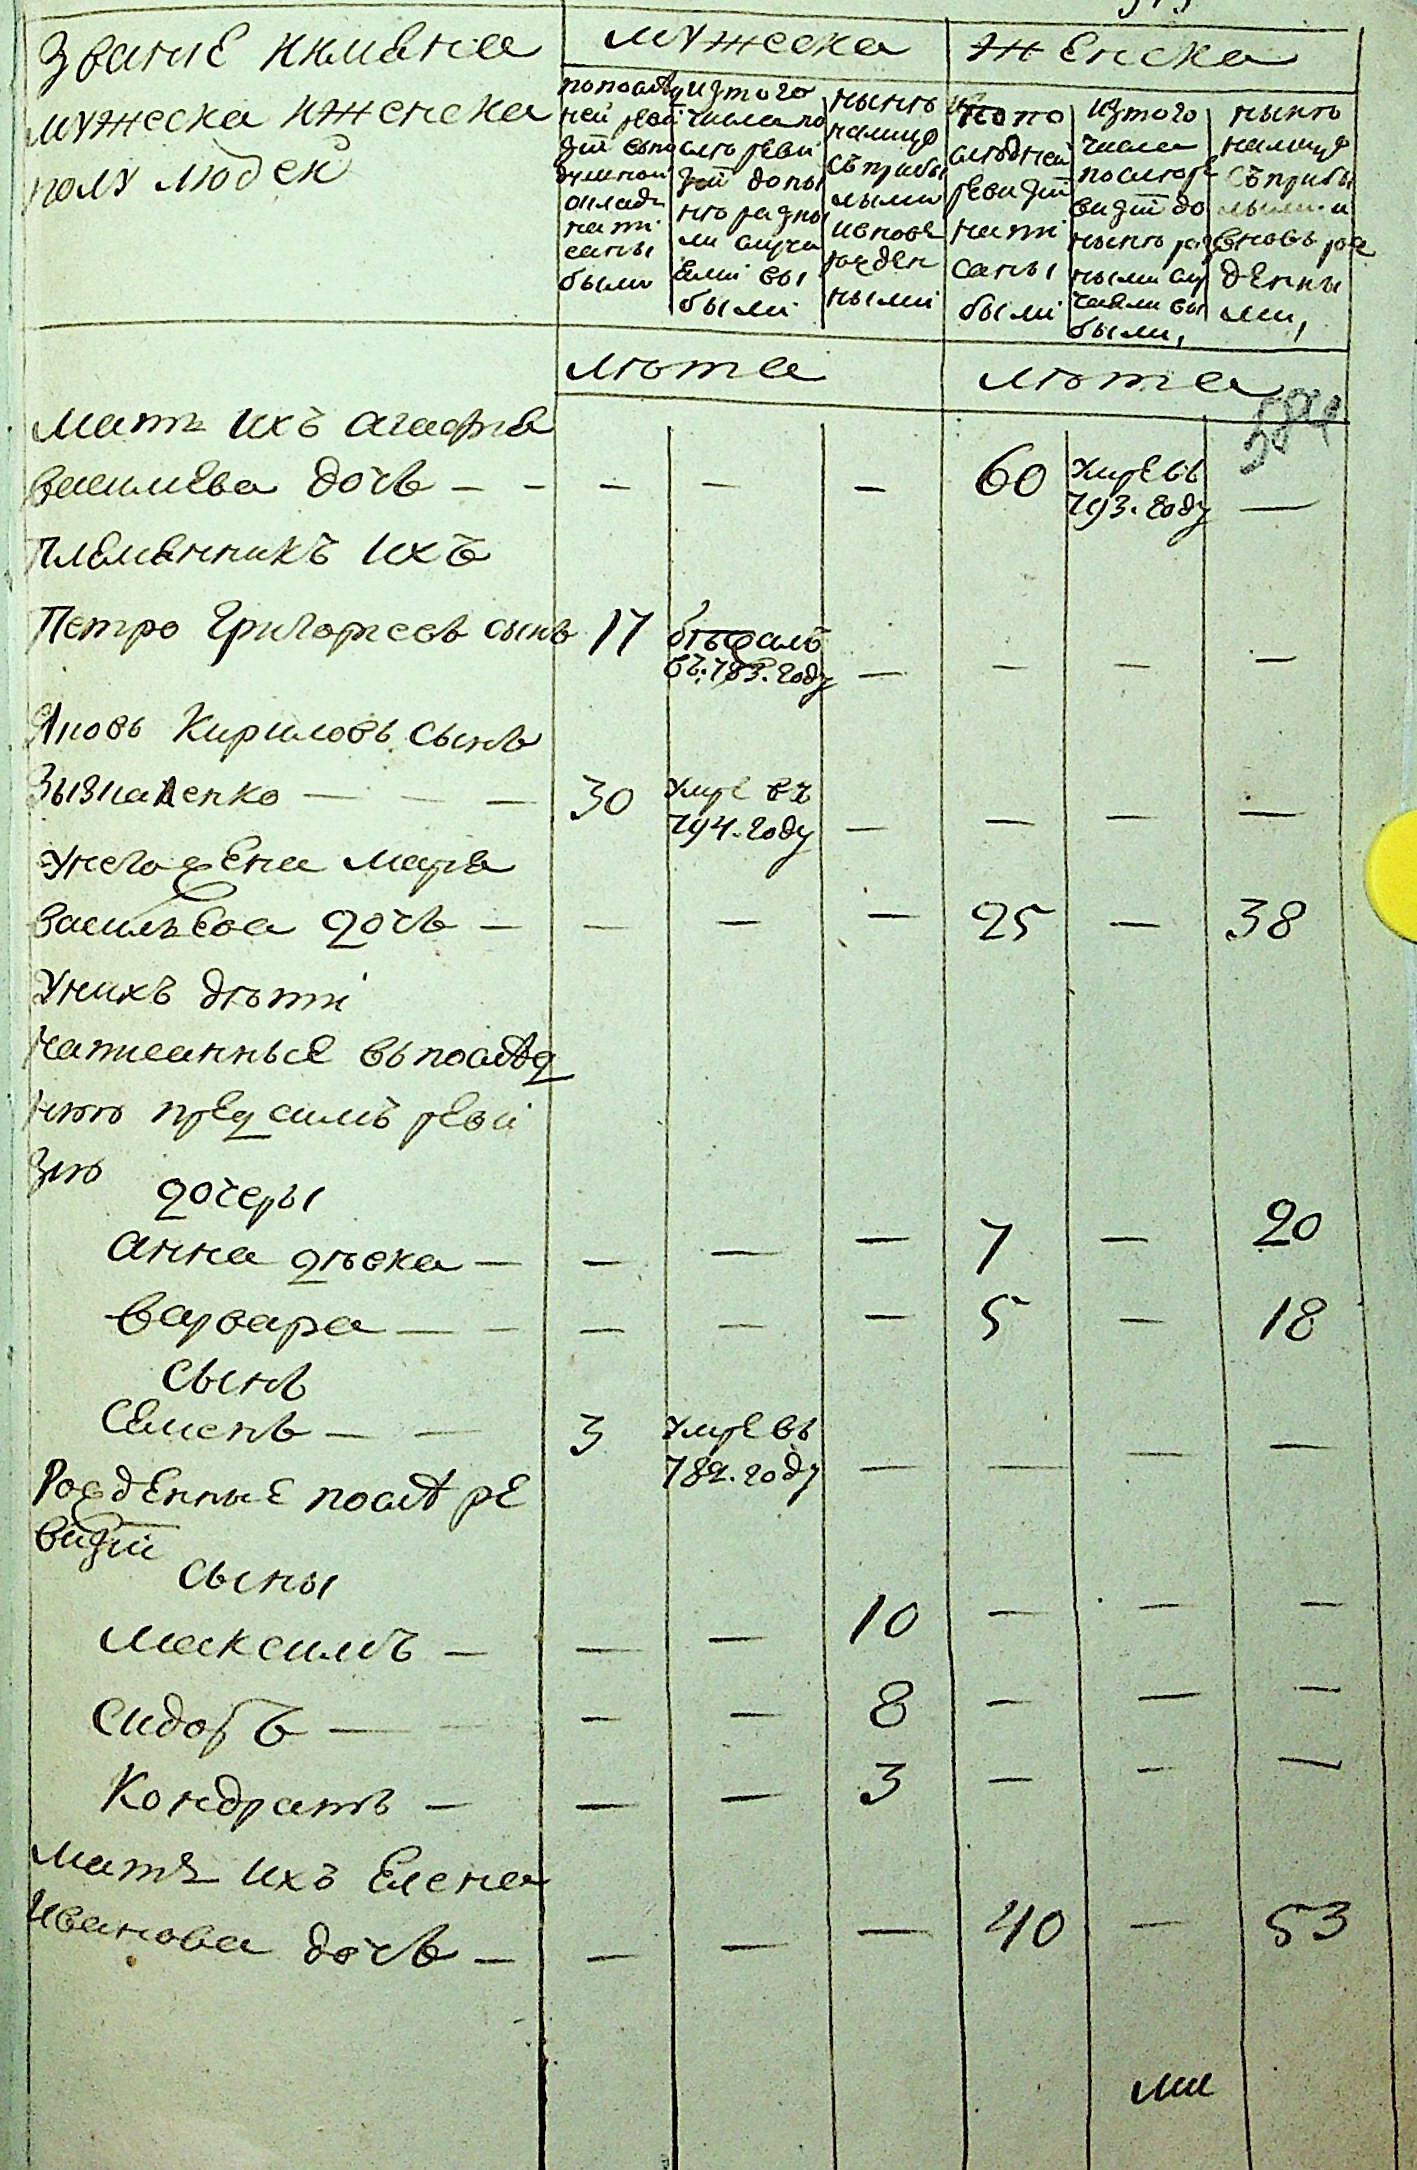 Званіе и имѧна
мужеска и женска
полу людей
мужеска
женска
по послѣд
ней реви
зіи въ по
душной
оклад
напи
саны
были
изтого
числа по
слѣ реви
зіи до ны
нѣ разны
ми случа
ями вы
были
нынѣ
налицо
съ прибы
лыми
и новоро
жден
ными
по по
слѣдней
ревизіи
напи
саны
были
изтого
числа
послѣ ре
визіи до
нынѣ раз
ными слу
чаями вы
были,
нынѣ
налицо
съ прибы
лыми и
вновь рож
денны
ми,
лѣта
лѣта
584
мать ихъ агафия
василиева дочь — — — — — 60 умре въ
793. году —
племянникъ ихъ
Петро Григориевъ сынъ 17 бѣжалъ
въ 783. году — — — —
Яковъ Кириловъ сынъ
Зызналенко — — — 30 умре въ
794. году — — — —
у него жена мария
васильева дочь — — — — 25 — 38
у нихъ дѣти
написанные въ послѣд
нюю пред симъ реви
зію
дочеры
анна дѣвка — — — — 7 — 20
варвара — — — — — 5 — 18
сынъ
Семенъ — — 3 умре въ
782. году — — — —
Рожденные послѣ ре
визіи
сыны
максимъ — — — 10 — — —
сидоръ — — — 8 — — —
Кондратъ — — — 3 — — —
мать ихъ Елена
Иванова дочь — — — — 40 — 53
ми